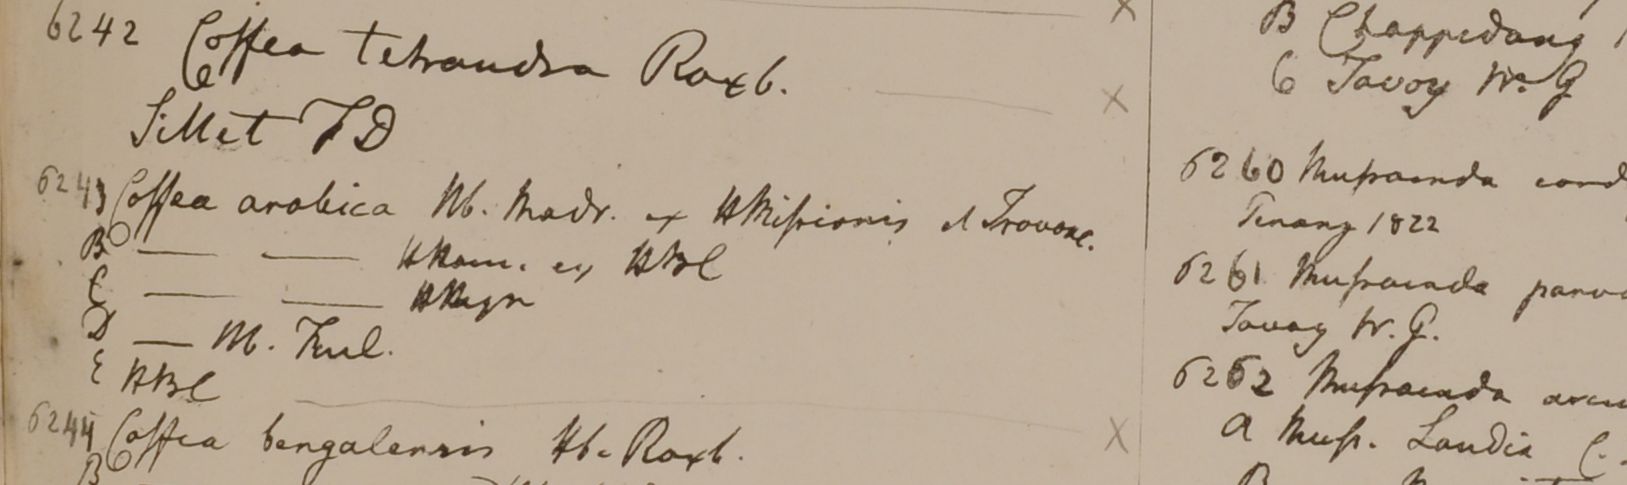 6242 Coffea tetrandra Roxb.
Sillet FD
6243 Coffea arabica Hb. Madr. ex HMissionis et Travanc.
B — — HHam. ex HBC
C — — HWight
D — Hb. Heyl.
E HBC
6244 Coffea bengalensis Hb. Roxb.
B
B Chappedong
C Tavoy W. G
6260 Mussaenda
Penang 1822
6261 Mussaenda
Tavoy W. G.
6262 Mussaenda
a Muss.
B